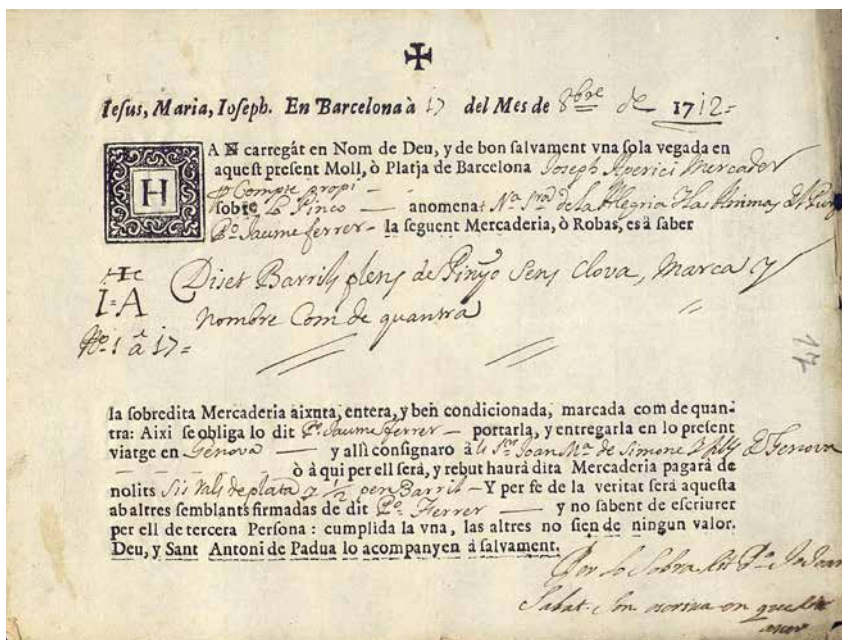 Iesus, Maria, Ioseph. En Barcelona à 17 del Mes de 8bre de 1712=
HA N carregát en Nom de Deu, y de bon salvament vna sola vegada en
aquest present Moll, ò Platja de Barcelona Joseph Aperici Mercader
Compte propi
sobre Lo Pinco anomenat Na. Sra. de la Alegria y las Animas del Purg
Po. Jaume ferrer la seguent Mercaderia, ò Robas, es à saber
I=A
No. 1 à 17=
Diset Barrils plens de Pinyo Sens Clova, Marca y
nombre Com de quantra
17
la sobredita Mercaderia aixuta, entera, y ben condicionada, marcada com de quan-
tra: Aixi se obliga lo dit Po. Jaume ferrer portarla, y entregarla en lo present
viatge en Genova y allí consignaro à Joan Ma. de Simone y fills de Genova
ò à qui per ell serà, y rebut haurà dita Mercaderia pagarà de
nolits Sis Rals de plata y 1/2 per Barril Y per fe de la veritat serà aquesta
ab altres semblants firmadas de dit Po. Ferrer y no sabent de escriurer
per ell de tercera Persona: cumplida la vna, las altres no sien de ningun valor.
Deu, y Sant Antoni de Padua lo acompanyen à salvament.
Por lo Sobra dit Po. Jo Joan
Sabat